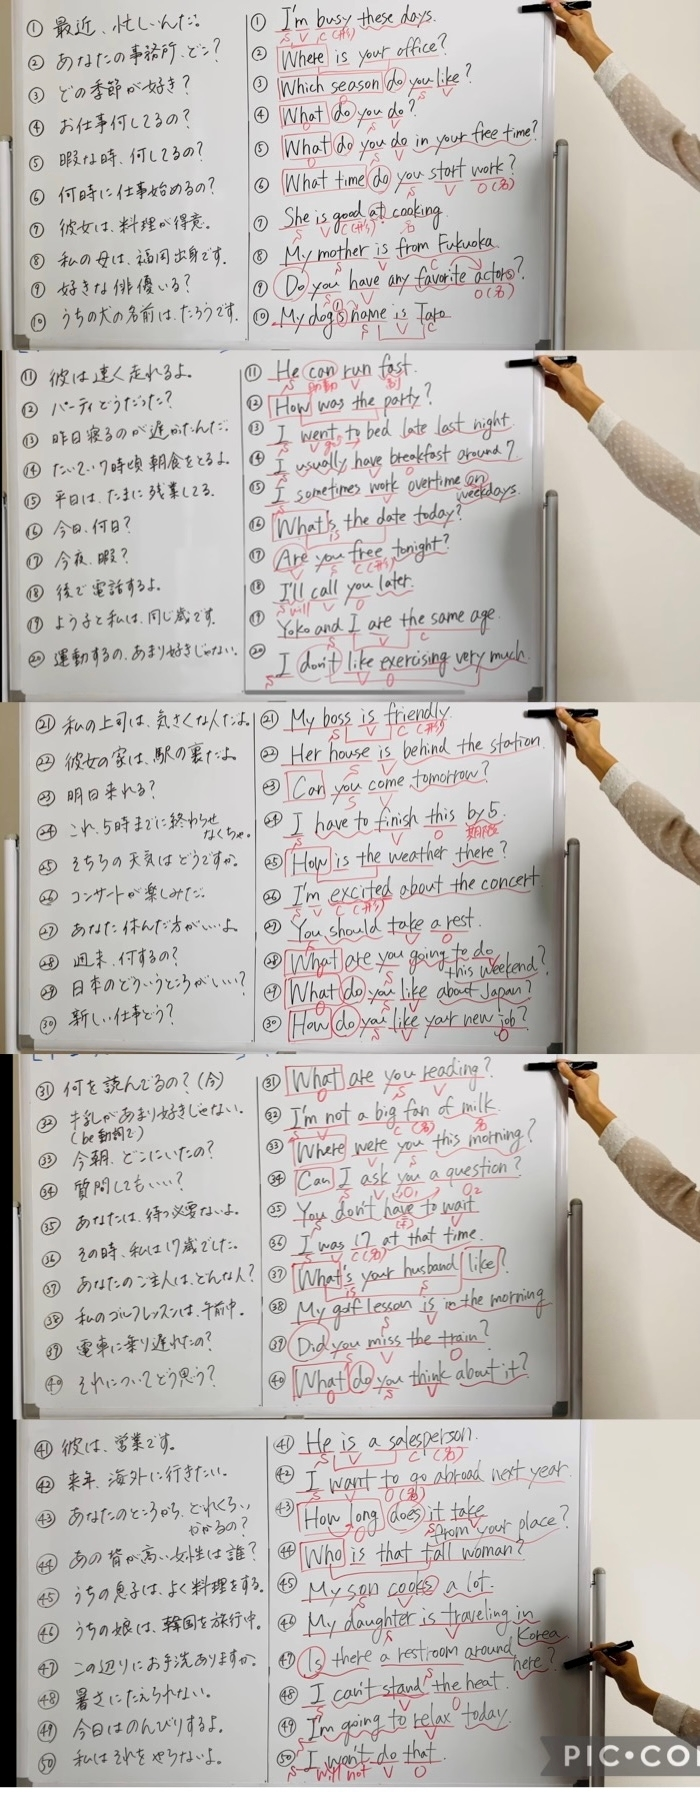 ① 最近、忙しいんだ。
② あなたの事務所、どこ?
③ どの季節が好き?
④ お仕事何してるの?
⑤ 暇な時、何してるの?
⑥ 何時に仕事始めるの?
⑦ 彼女は、料理が得意。
⑧ 私の母は、福岡出身です。
⑨ 好きな俳優いる?
⑩ うちの犬の名前は、たろうです。
① I'm busy these days.
② Where is your office?
③ Which season do you like?
④ What do you do?
⑤ What do you do in your free time?
⑥ What time do you start work?
⑦ She is good at cooking.
⑧ My mother is from Fukuoka.
⑨ Do you have any favorite actors?
⑩ My dog's name is Taro
⑪ 彼は速く走れるよ。
⑫ パーティどうだった?
⑬ 昨日寝るのが遅かったんだ。
⑭ だいたい7時頃 朝食をとるよ。
⑮ 平日は、たまに残業してる。
⑯ 今日、何日?
⑰ 今夜、暇?
⑱ 後で電話するよ。
⑲ よう子と私は、同じ歳です。
⑳ 運動するの、あまり好きじゃない。
⑪ He can run fast.
⑫ How was the party?
⑬ I went to bed late last night.
⑭ I usually have breakfast around 7
⑮ I sometimes work overtime on
weekdays.
⑯ What's the date today?
⑰ Are you free tonight?
⑱ I'll call you later.
⑲ Yoko and I are the same age.
⑳ I don't like exercising very much.
㉑ 私の上司は、気さくな人だよ。
㉒ 彼女の家は、駅の裏だよ。
㉓ 明日来れる?
㉔ これ、5時までに終わらせ
なくちゃ。
㉕ そちらの天気はどうですか。
㉖ コンサートが楽しみだ。
㉗ あなた休んだ方がいいよ。
㉘ 週末、何するの?
㉙ 日本のどういうところがいい?
㉚ 新しい仕事どう?
㉑ My boss is friendly.
㉒ Her house is behind the station.
㉓ Can you come tomorrow?
㉔ I have to finish this by 5.
㉕ How is the weather there?
㉖ I'm excited about the concert.
㉗ You should take a rest.
㉘ What are you going to do
this weekend?
㉙ What do you like about Japan?
㉚ How do you like your new job?
㉛ 何を読んでるの?(今)
㉜ 牛乳があまり好きじゃない。
(be動詞で)
㉝ 今朝、どこにいたの?
㉞ 質問してもいい?
㉟ あなたは、待つ必要ないよ。
㊱ その時、私は17歳でした。
㊲ あなたのご主人は、どんな人?
㊳ 私のゴルフレッスンは、午前中。
㊴ 電車に乗り遅れたの?
㊵ それについてどう思う?
㉛ What are you reading?
㉜ I'm not a big fan of milk.
㉝ Where were you this morning?
㉞ Can I ask you a question?
㉟ You don't have to wait
㊱ I was 17 at that time.
㊲ What's your husband like?
㊳ My golf lesson is in the morning
㊴ Did you miss the train?
㊵ What do you think about it?
㊶ 彼は、営業です。
㊷ 来年、海外に行きたい。
㊸ あなたのところから、どれくらい
かかるの?
㊹ あの背が高い女性は誰?
㊺ うちの息子は、よく料理をする。
㊻ うちの娘は、韓国を旅行中。
㊼ この辺りにお手洗ありますか。
㊽ 暑さにたえられない。
㊾ 今日はのんびりするよ。
㊿ 私はそれをやらないよ。
㊶ He is a salesperson.
㊷ I want to go abroad next year.
㊸ How long does it take
from your place?
㊹ Who is that tall woman?
㊺ My son cooks a lot.
㊻ My daughter is traveling in
Korea
㊼ Is there a restroom around
here?
㊽ I can't stand the heat.
㊾ I'm going to relax today.
㊿ I won't do that.
will not
PIC•CO